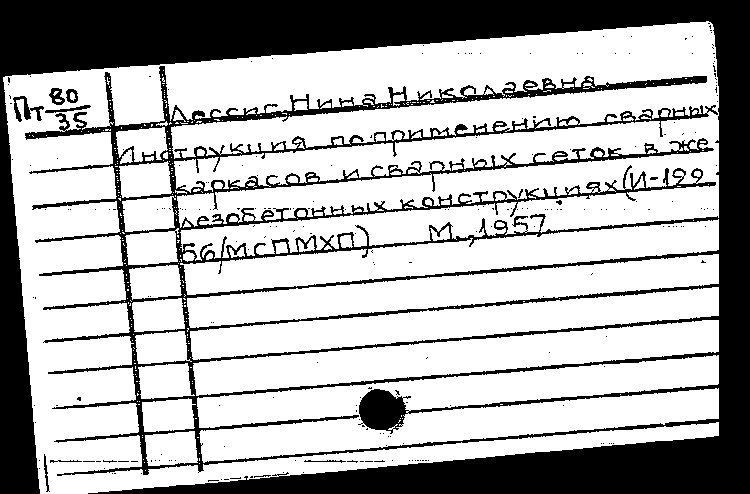 Пт 80/35
Лессис, Нина Николаевна.
Инструкция по применению сварных
каркасов и сварных сеток в же-
лезобетонных конструкциях (И-199-
56/МСПМХП) М., 1957.